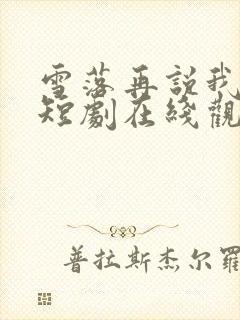 雪落再說我
短劇在綫觀
普拉斯杰尔羅